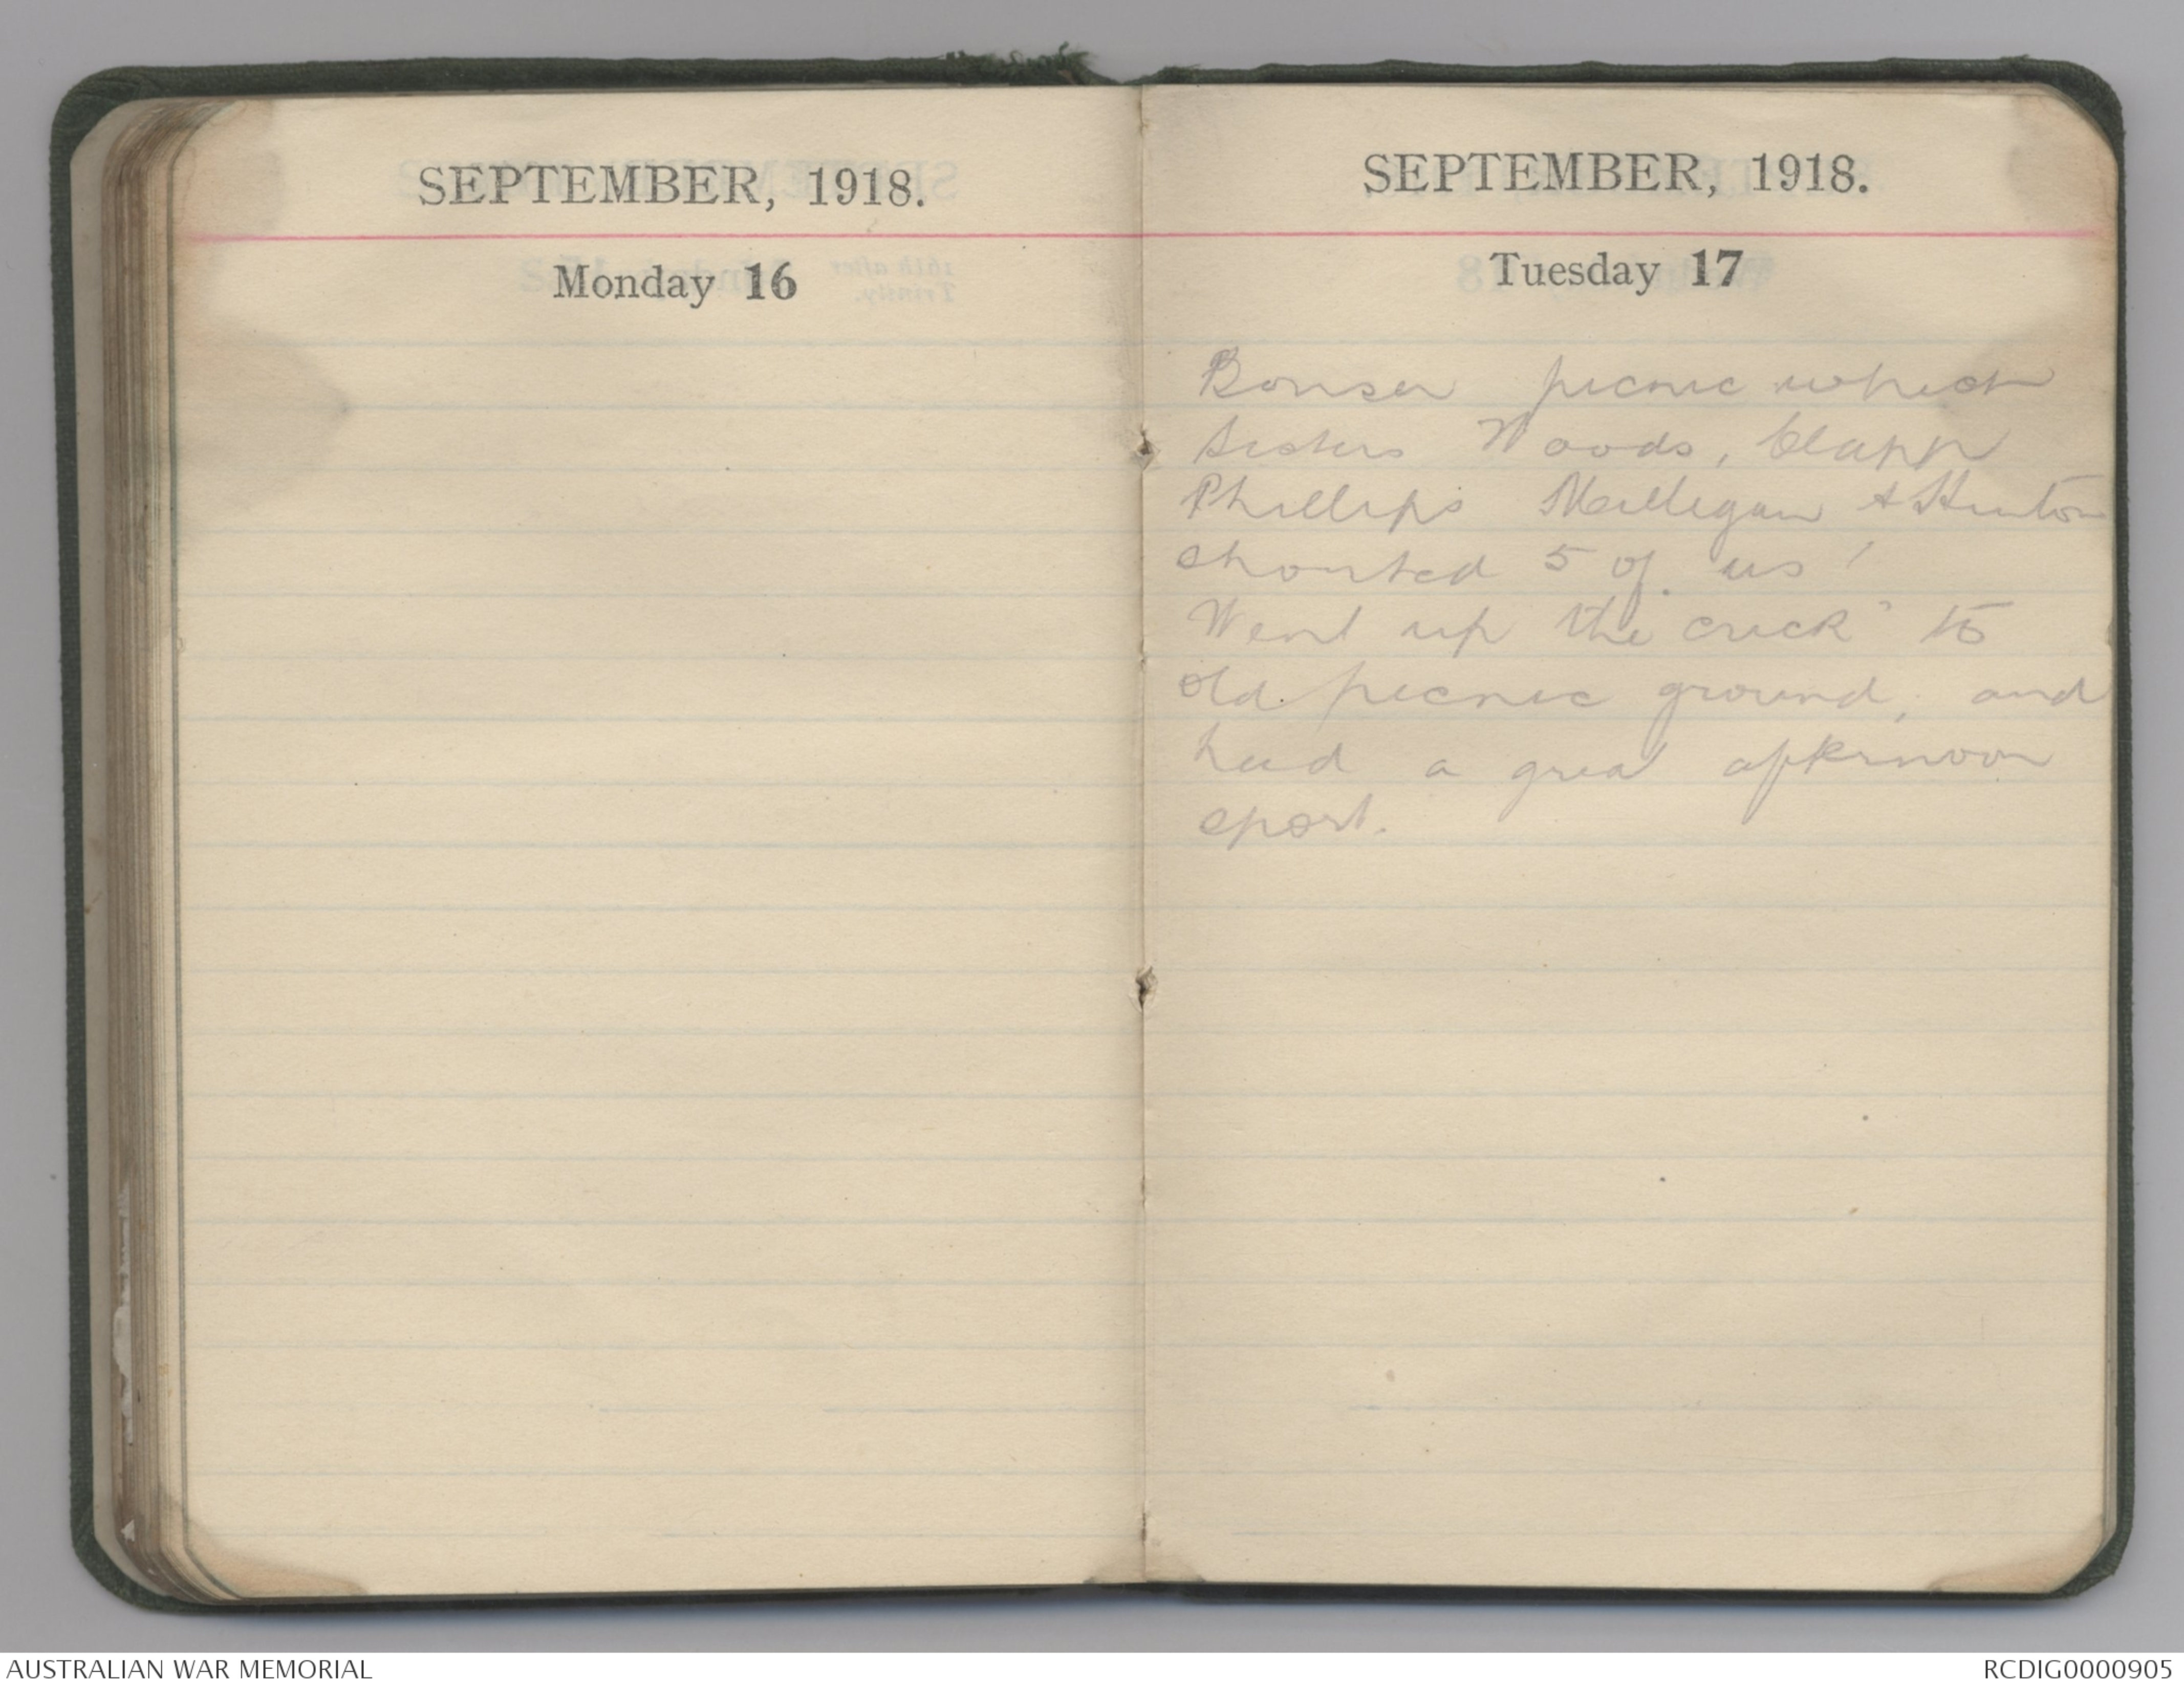 SEPTEMBER, 1918.
Monday 16
SEPTEMBER, 1918.
Tuesday 17
Bonser picnic which
Sisters Woods, Clapp
Phillips Milligan & Hinton
shouted 5 of us!
Went up the crick" to
old picnic ground, and
had a great afternoon
sport.
AUSTRALIAN WAR MEMORIAL
RCDIG0000905